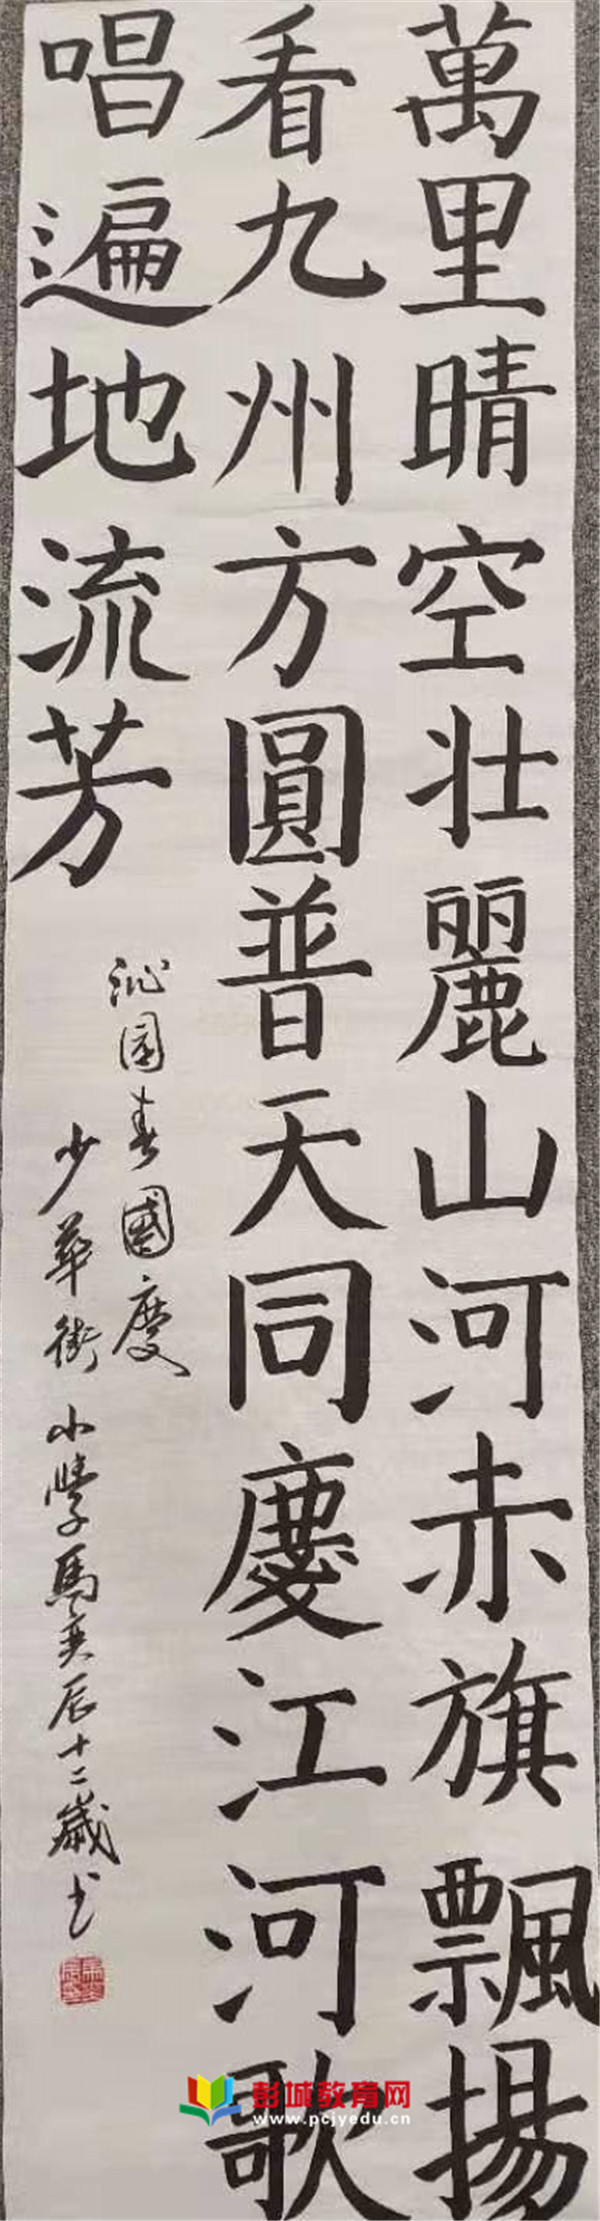 萬里晴空壮麗山河赤旗飄揚
看九州方圓普天同慶江河歌
唱遍地流芳
沁园春國慶
少華街小學馬奕辰十二歲书
彭城教育网
www.pcjyedu.cn